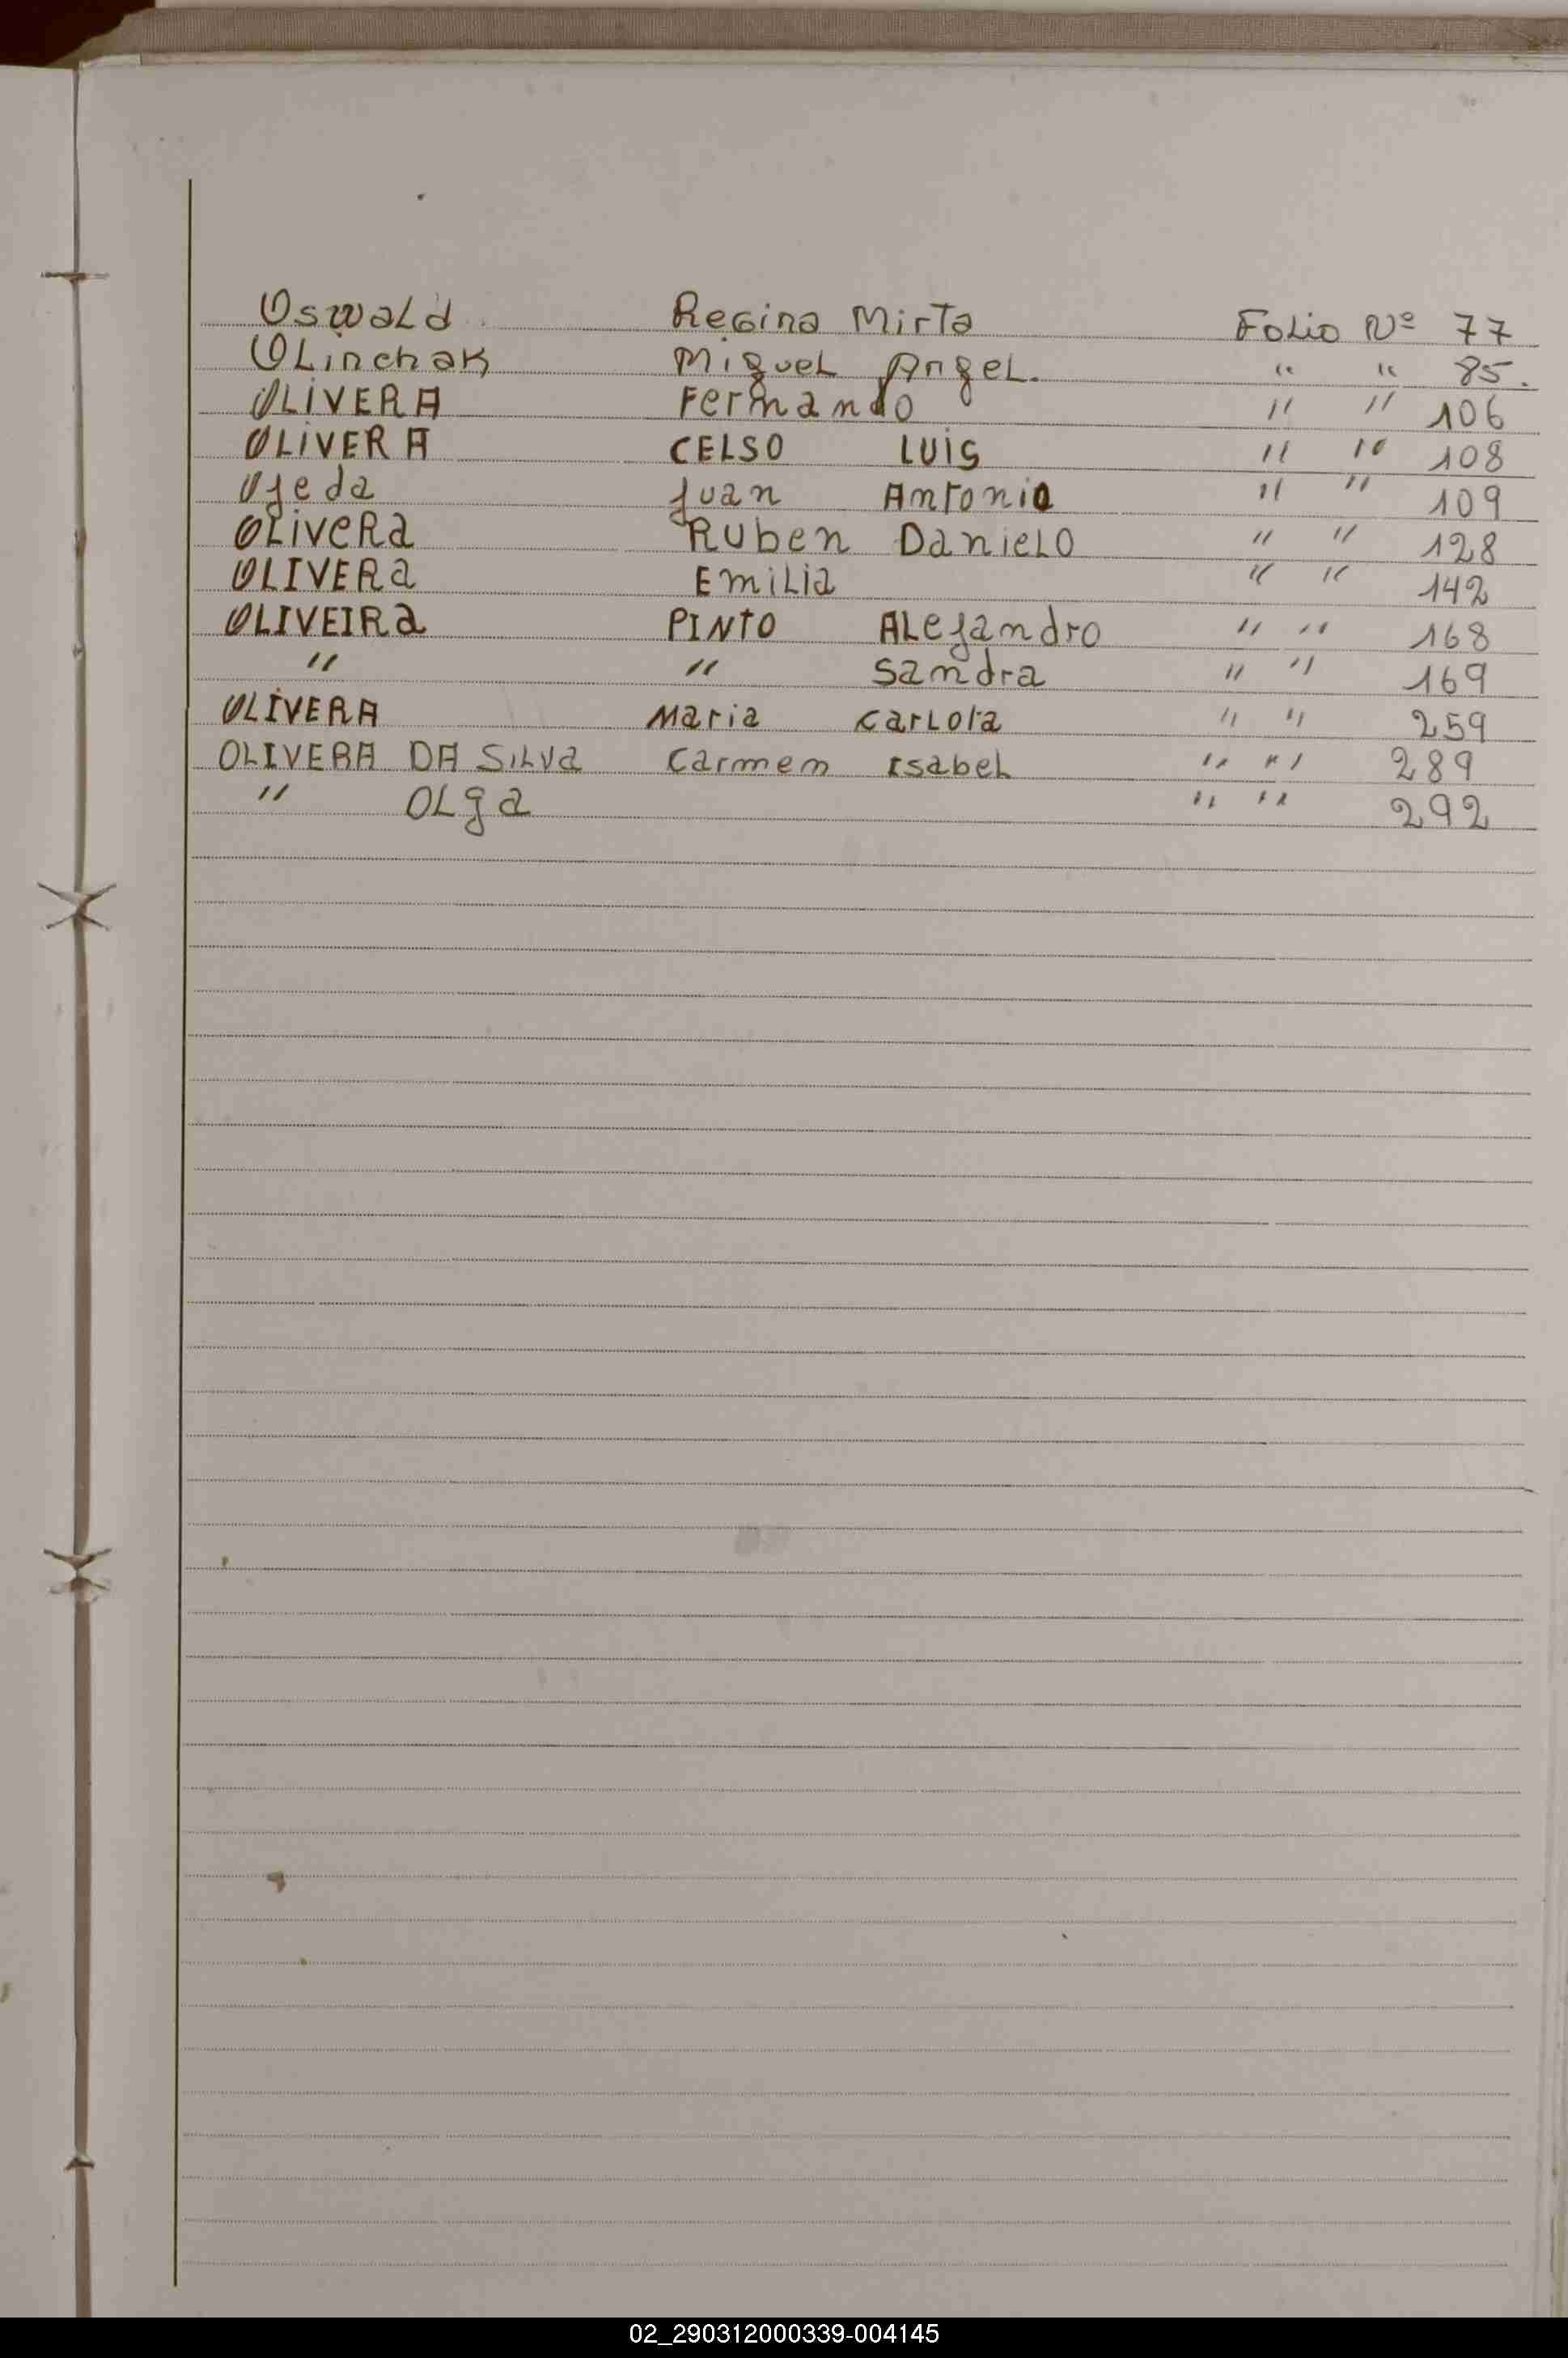 Oswald Regina Mirta Folio Nº 77
Olinchak Miguel Angel. " " 85.
OLIVERA Fernando " " 106
OLIVERA CELSO LUIS " " 108
Ojeda Juan Antonio " " 109
OLIVERA Ruben DanieLO " " 128
OLIVERA EmiLia " " 142
OLIVEIRA PINTO ALejandro " " 168
" " Sandra " " 169
OLIVERA Maria CarLota " " 259
OLIVERA DA SILVA Carmen Isabel " " 289
" OLga " " 292
02_290312000339-004145